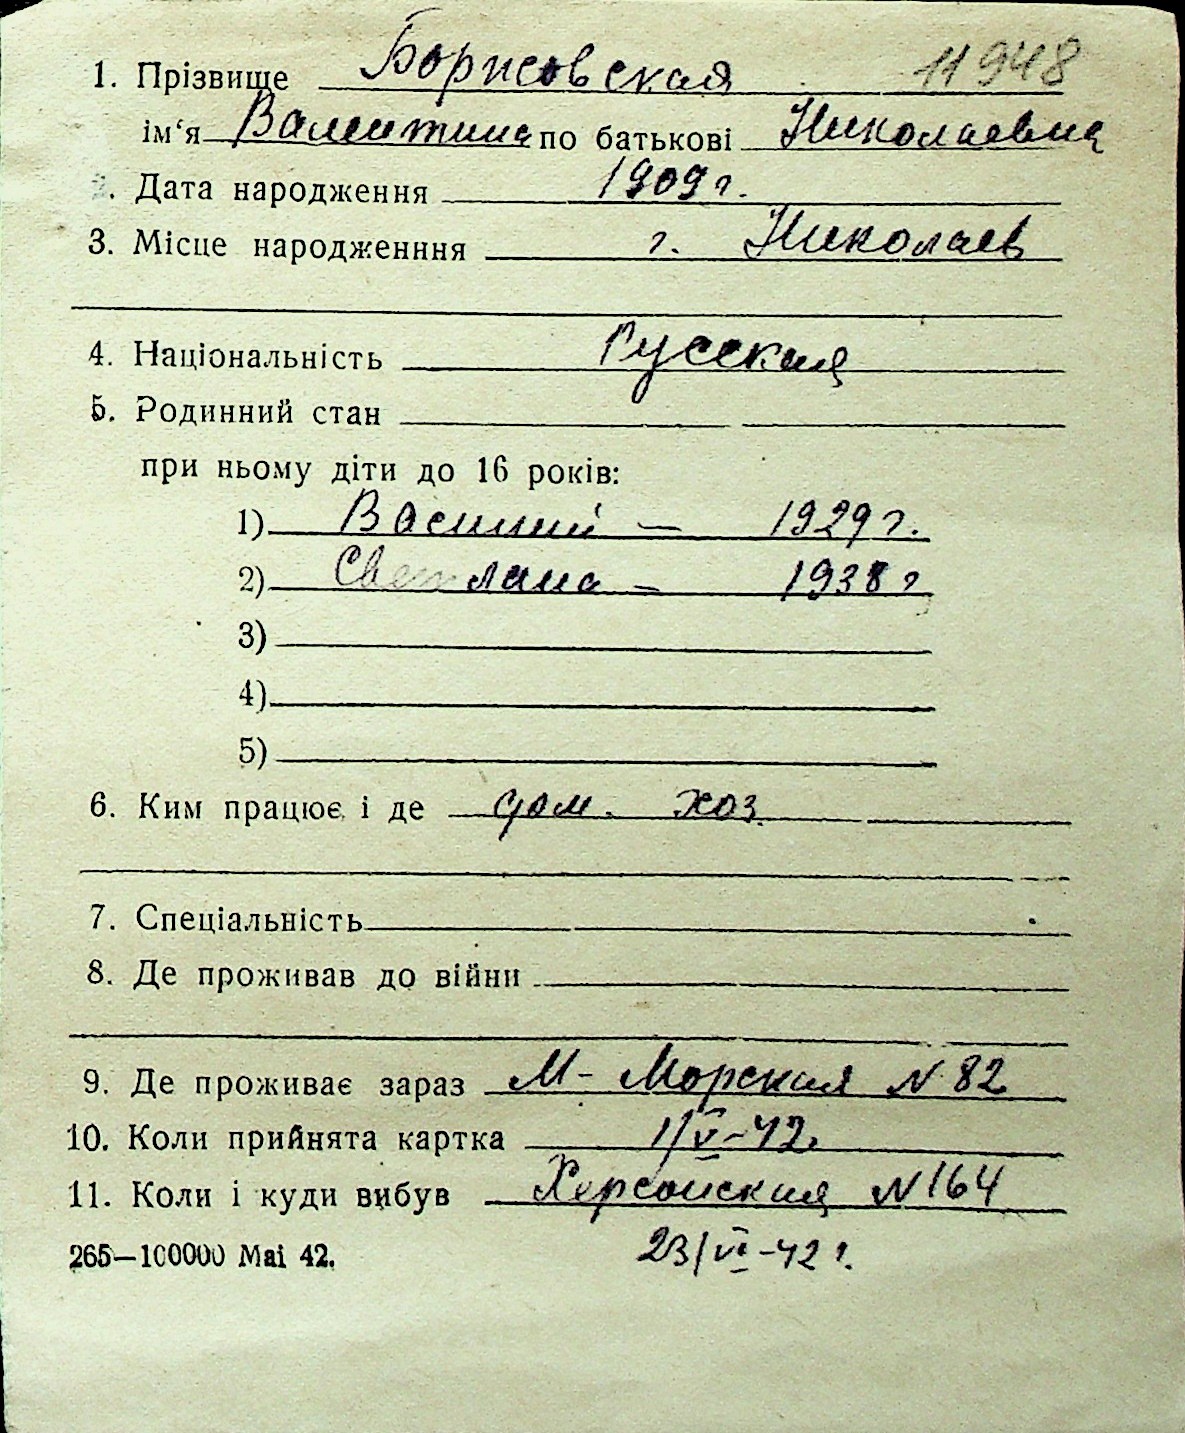 1. Прізвище Борисовская 11948
ім‘я Валентина по батькові Николаевна
2. Дата народження 1909 г.
3. Місце народженння г. Николаев
4. Національність Русская
5. Родинний стан
при ньому діти до 16 років:
1) Василий — 1929 г.
2) Светлана — 1938 г
3)
4)
5)
6. Ким працює і де дом. хоз.
7. Спеціальність
8. Де проживав до війни
9. Де проживає зараз М-Морская N 82
10. Коли прийнята картка 1/V-42.
11. Коли і куди вибув Херсонская N 164
265—100000 Mai 42. 23/VI-42 г.